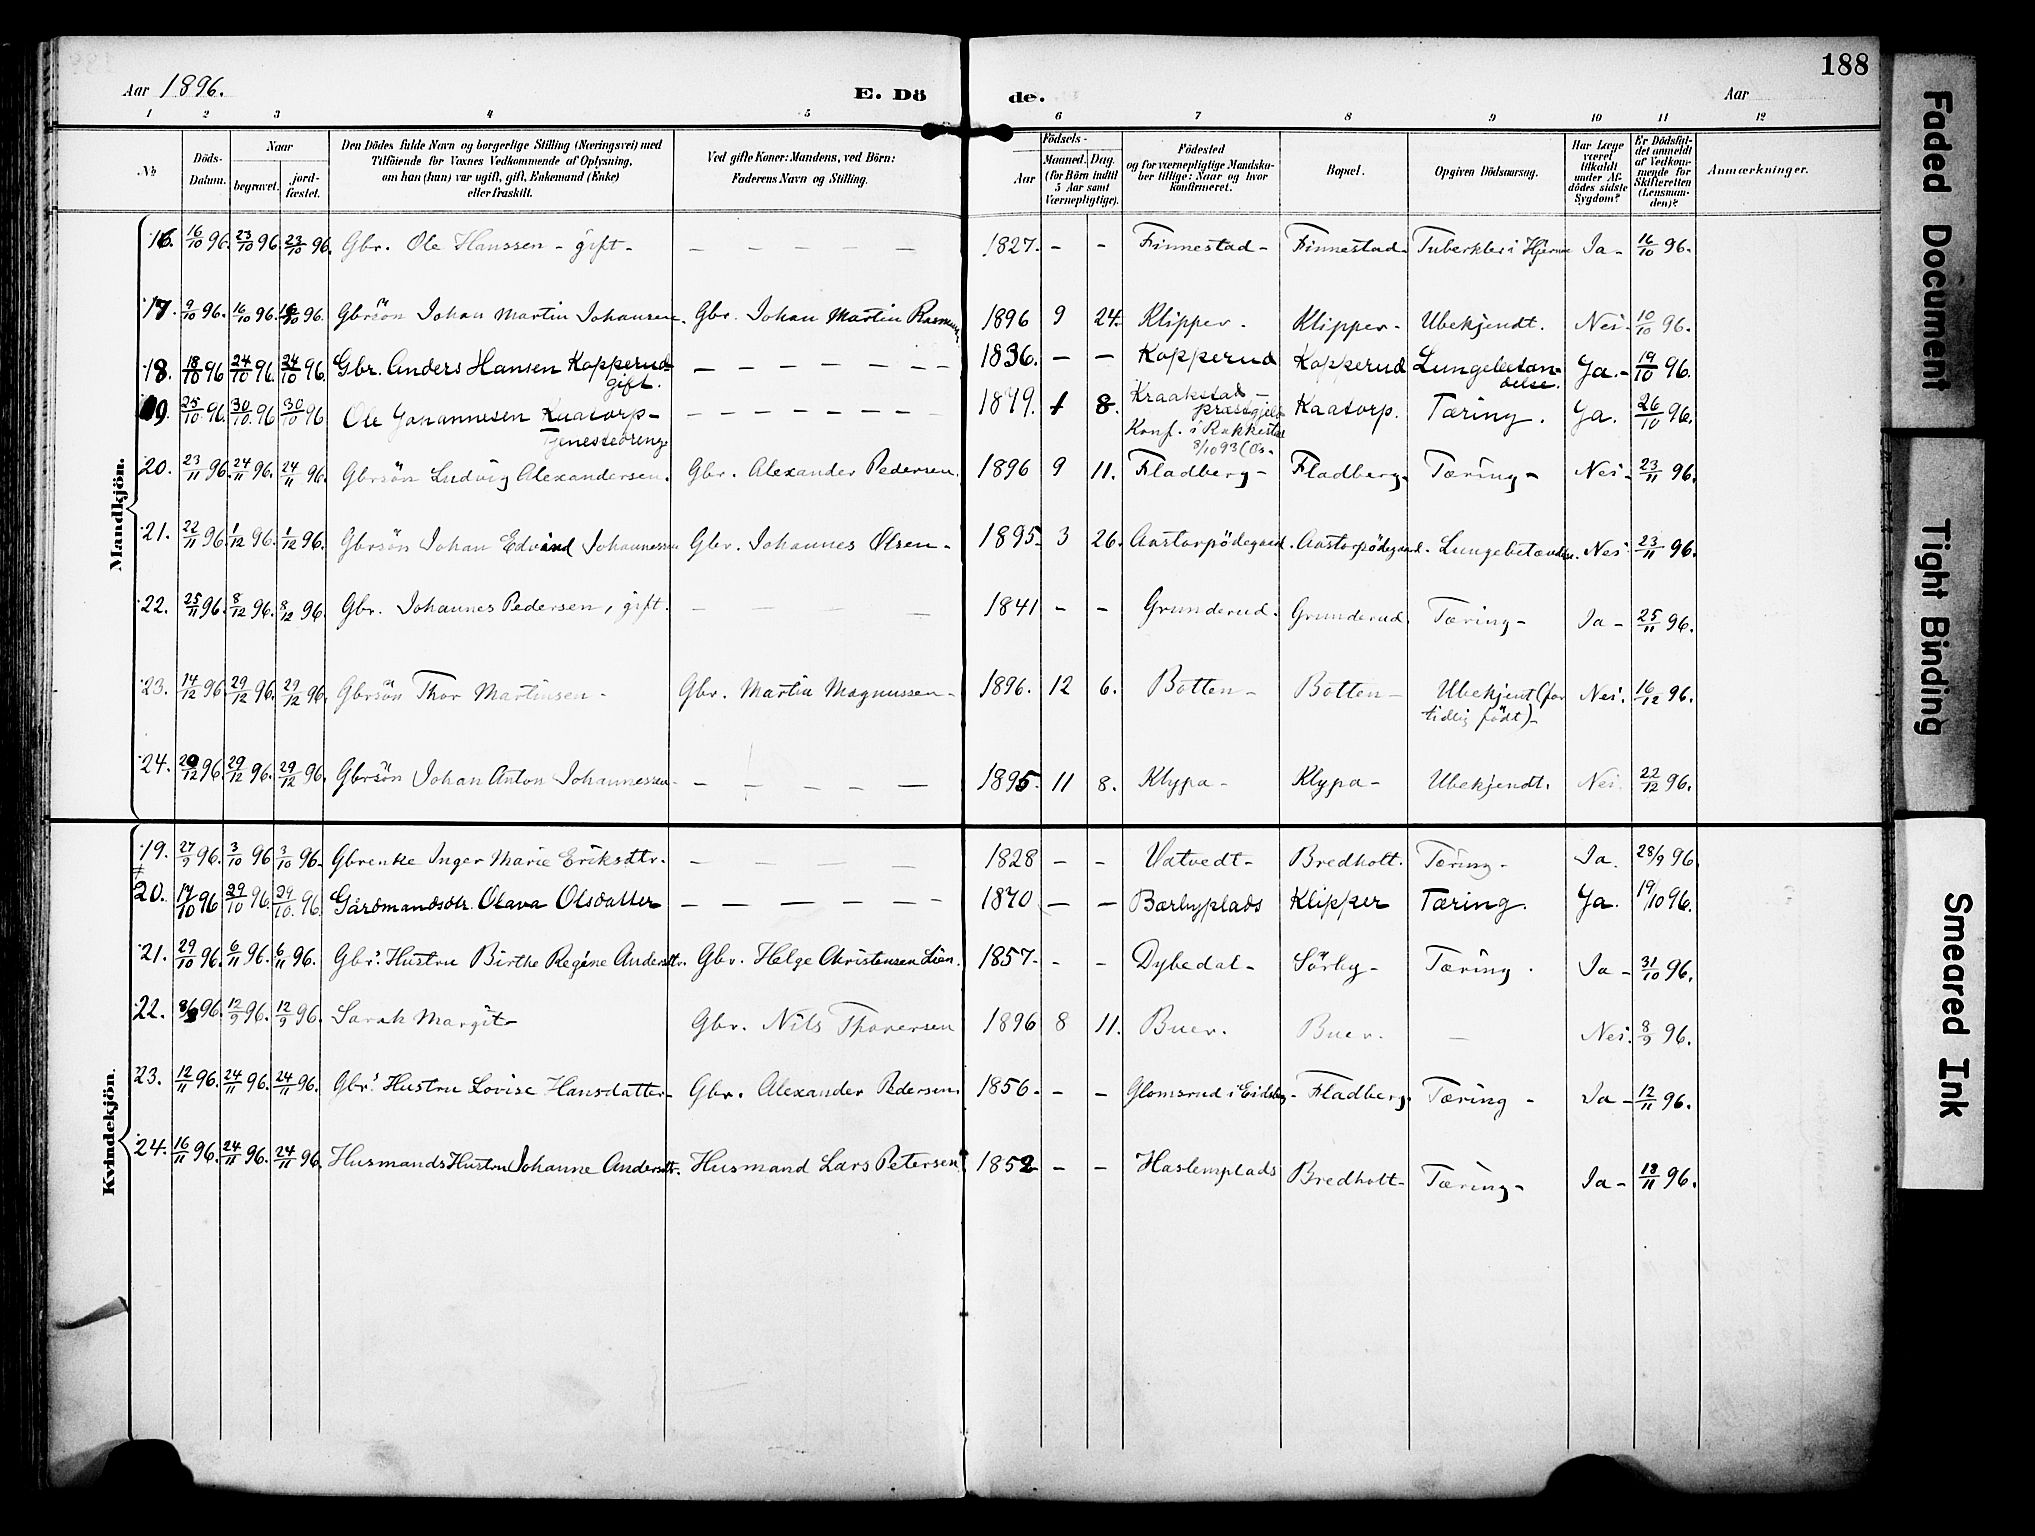 188
Aar 1896.
E. Dö de.
Aar
1 2 3 4 5 6 7 8 9 10 11 12
No
Döds-Datum.
Naar
begravet.
jord-fæstet.
Den Dödes fulde Navn og borgerlige Stilling (Næringsvei) med
Tilföiende for Voxnes Vedkommende af Oplysning,
om han (hun) var ugift, gift, Enkemand (Enke)
eller fraskilt.
Ved gifte Koner: Mandens, ved Börn:
Faderens Navn og Stilling.
Födsels-
Aar
Maaned. Dag.
(for Börn indtil
5 Aar samt
Værnepligtige).
Födested
og for værnepligtige Mandskaber tillige: Naar og hvor
konfirmeret.
Bopæl.
Opgiven Dödsaarsag.
Har Læge
været
tilkaldt
under Afdödes sidste
Sygdom?
Er Dödsfaldet anmeldt
af Vedkommende for
Skifteretten
(Lensmanden)?
Anmærkninger.
Mandkjön.
16. 16/10 96. 23/10 96. 23/10 96. Gbr. Ole Hanssen - gift - — — — — — 1827. - - Finnestad - Finnestad - Tuberkler i Hjerne Ja - 16/10 96.
17. 9/10 96. 16/10 96. 16/10 96. Gbrsön Johan Martin Johansen. Gbr. Johan Martin Rasmussen 1896 9 24. Klipper. Klipper. Ubekjendt. Nei. 10/10 96.
18. 18/10 96 24/10 96. 24/10 96. Gbr. Anders Hansen Kopperud gift. — — — — — 1836. — — Kopperud Kopperud Lungebetændelse. Ja. - 19/10 96.
19. 25/10 96. 30/10 96 30/10 96 Ole Johannesen Kaatorp - Tjenestedreng — — — — — 1879. 1 8. Kraakstad præstgjeld Konf. i Rakkestad 8/10 93 Kaatorp. Tæring. Ja. 26/10 96.
20. 23/11 96. 24/11 96. 24/11 96. Gbrsön Ludvig Alexandersen. Gbr. Alexander Pedersen. 1896 9 11. Fladberg - Fladberg. Tæring - Nei - 23/11 96.
21. 22/11 96. 1/12 96. 1/12 96. Gbrsön Johan Edvind Johannessen Gbr. Johannes Olsen - 1895. 3 26. Aastorpödegaard. Aastorpödegaard. Lungebetændelse. Nei. 23/11 96.
22. 25/11 96. 8/12 96. 8/12 96. Gbr. Johannes Pedersen, gift. — — — — 1841 - - Grunderud. Grunderud. Tæring - Ja - 25/11 96.
23. 14/12 96. 29/12 96. 29/12 96. Gbrsön Thor Martinsen - Gbr. Martin Magnussen - 1896. 12 6. Botten - Botten - Ubekjent (for tidlig födt) - Nei. 16/12 96.
24. 20/12 96. 29/12 96. 29/12 96. Gbrsön Johan Anton Johannessen - — — — — — 1895. 11 8. Klypa - Klypa - Ubekjendt. Nei. 22/12 96.
Kvindekjön.
19. 27/9 96. 3/10 96 3/10 96. Gbrenke Inger Marie Eriksdtr. — — — — 1828 — - Vatvedt - Bredholt. Tæring - Ja. 28/9 96.
20. 17/10 96 29/10 96. 29/10. 96. Gårdmandsdtr. Olava Olsdatter — — — — — 1870 — — Bærbyplads Klipper Tæring. Ja. 19/10 96.
21. 29/10 96. 6/11 96. 6/11 96. Gbr's Hustru Birthe Regine Andersdtr. Gbr. Helge Christensen Lien. 1857. - - Dybedal - Sörby - Tæring. Ja - 31/10 96.
22. 8/9 96. 12/9 96. 12/9 96. Sarah Margit - Gbr. Nils Thoversen 1896 8 11. Buer. Buer. — Nei. 8/9 96.
23. 12/11 96. 24/11 96. 24/11 96. Gbr's Hustru Lovise Hansdatter - Gbr. Alexander Pedersen. 1856. - - Glomsrud i Eidsberg - Fladberg. Tæring - Ja - 12/11 96.
24. 16/11 96. 24/11 96. 24/11 96. Husmands Hustru Johanne Andersdtr. Husmand Lars Petersen 1852 — — Haslemplads Bredholt - Tæring - Ja - 18/11 96.
Faded Document
Tight Binding
Smeared Ink